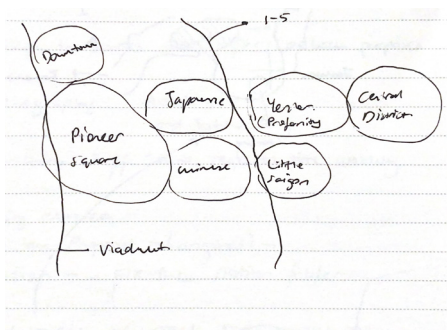 I-5
Downtown
Japanese
Yesler
(Preformity
Central
District
Pioneer
Square
Chinese
Little
Saigon
Viaduct